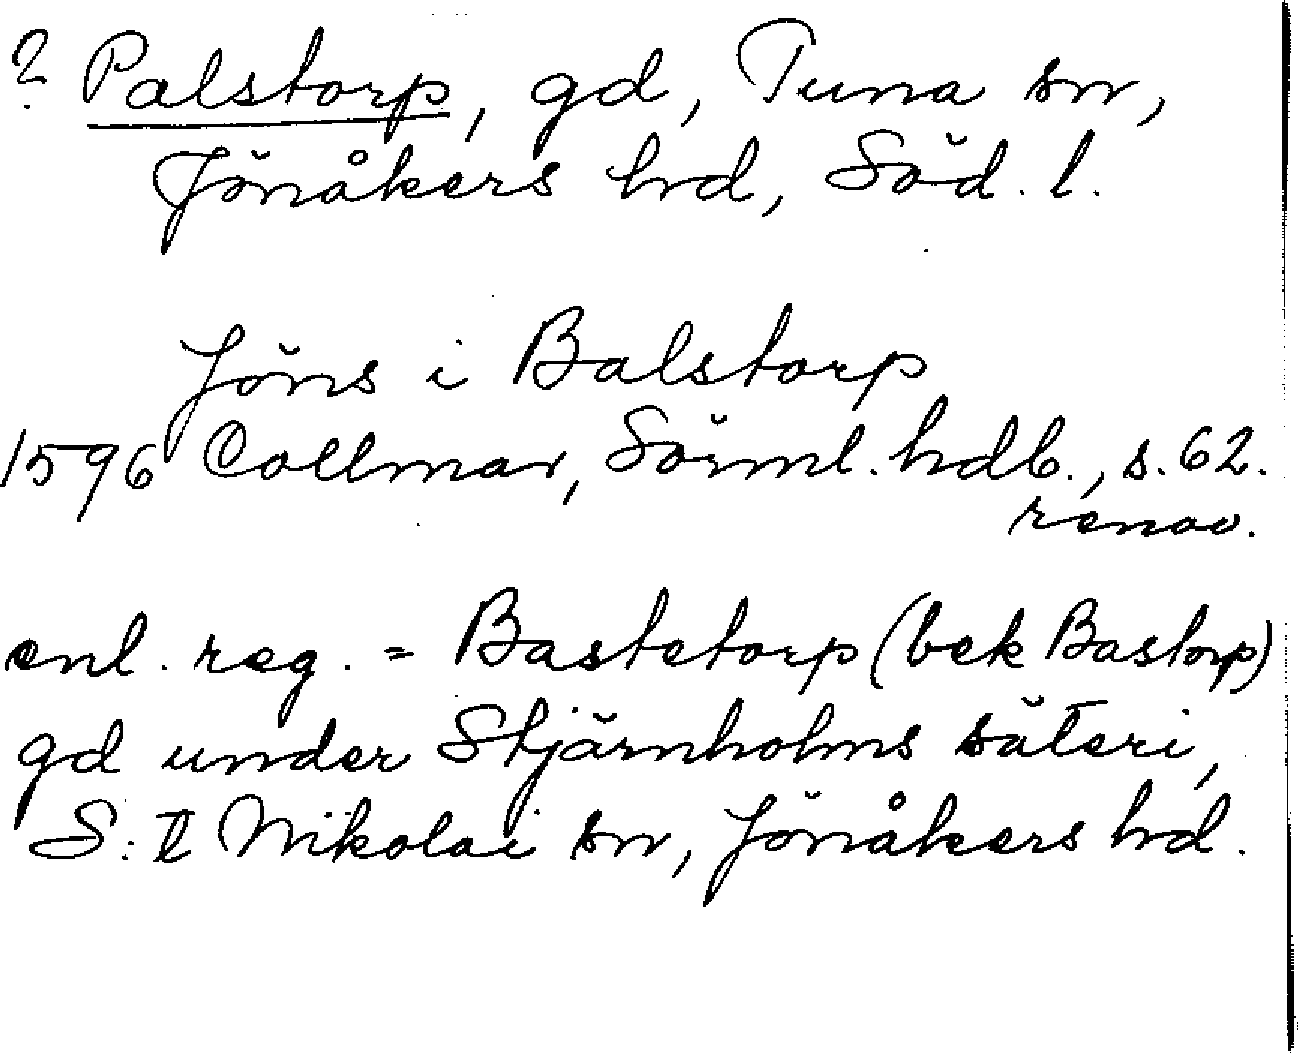 ? Palstorp, gd, Tuna sn,
Jönåkers hd, Söd. l.
Jöns i Balstorp
1596 Collmar, Sörml. hdb., s. 62.
renov.
enl. reg. = Bastetorp (bek Bastorp)
gd under Stjärnholms säteri,
S:t Nikolai sn, Jönåkers hd.